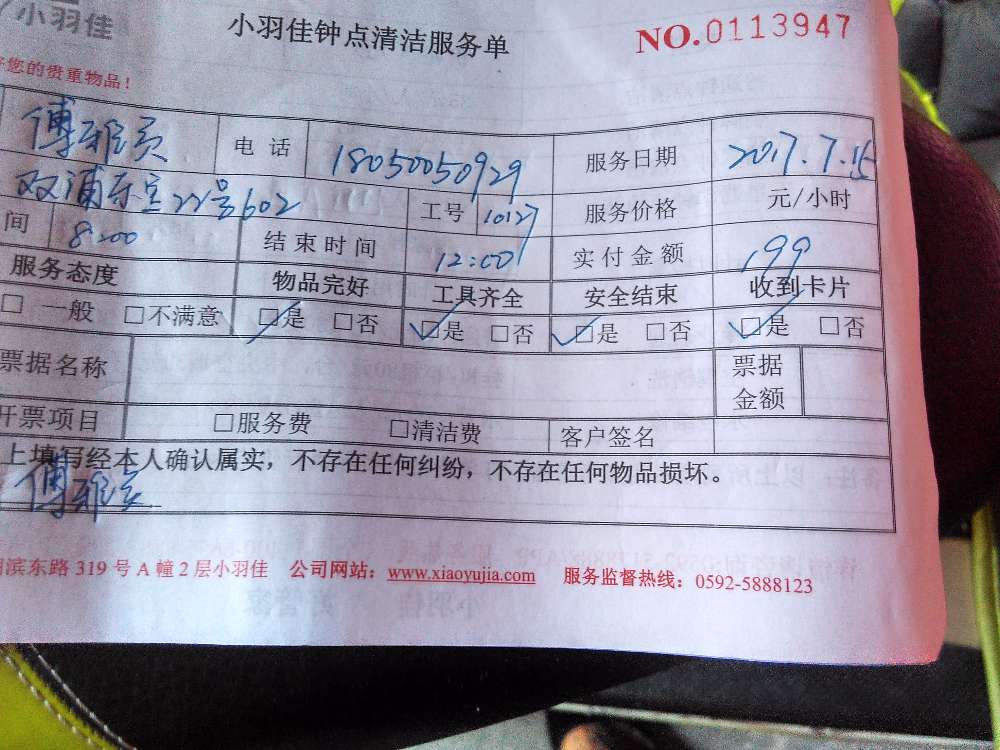 小羽佳
小羽佳钟点清洁服务单
NO.0113947
您的贵重物品！
傅雅 电话 18050050929 服务日期 2017.7.15
双浦东 22号602 工号 10127 服务价格 元/小时
间 8:00 结束时间 12:00 实付金额 199
服务态度 物品完好 工具齐全 安全结束 收到卡片
□ 一般 □不满意 □是 □否 □是 □否 □是 □否 □是 □否
票据名称 票据金额
开票项目 □服务费 □清洁费 客户签名
上填写经本人确认属实，不存在任何纠纷，不存在任何物品损坏。
傅雅
滨东路 319 号 A 幢 2 层小羽佳 公司网站：www.xiaoyujia.com 服务监督热线：0592-5888123